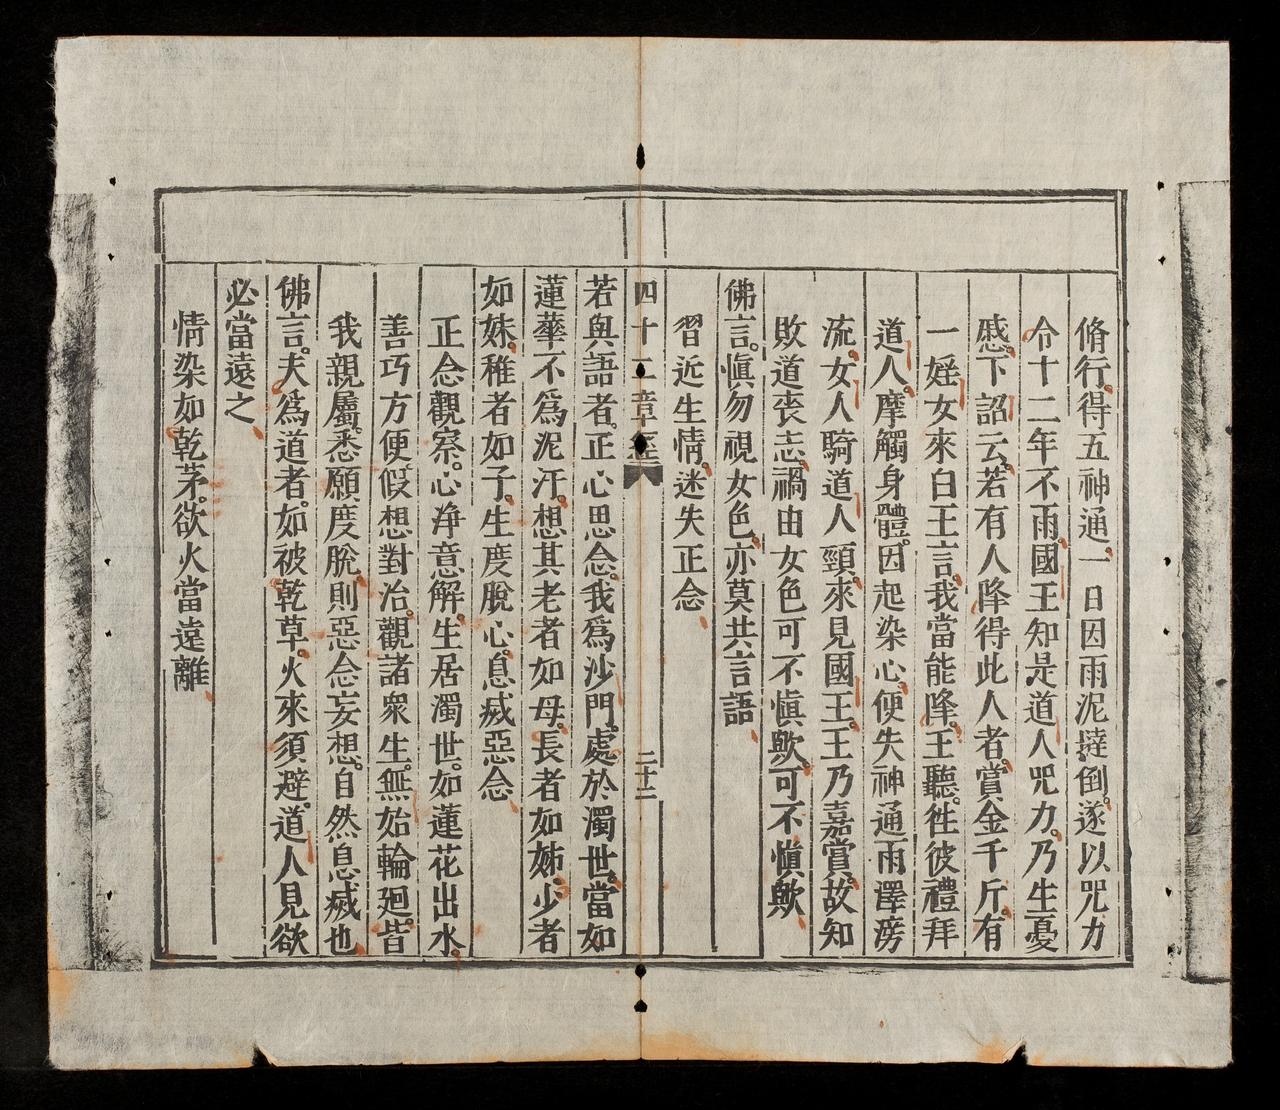 脩行。得五神通。一日因雨泥㺚倒。遂以咒力
令十二年不雨。國王知是道人咒力。乃生憂
慼。下詔云。若有人降得此人者。賞金千斤。有
一婬女來白王言。我當能降。王聽。徃彼禮拜
道人。摩觸身體。因起染心。便失神通。雨澤滂
流。女人騎道人頸。來見國王。王乃嘉賞。故知
敗道喪志。禍由女色。可不慎歟。可不慎歟
佛言。慎勿視女色。亦莫共言語
習近生情。迷失正念
四十二章經 二十二
若與語者。正心思念。我為沙門。處於濁世。當如
蓮華。不為泥汙。想其老者如母。長者如姊。少者
如妹。稚者如子。生度脫心。息滅惡念
正念觀察。心淨意解。生居濁世。如蓮花出水。
善巧方便。假想對治。觀諸衆生。無始輪廻。皆
我親屬。悉願度脫。則惡念妄想。自然息滅也
佛言。夫為道者。如被乾草。火來須避。道人見欲
必當遠之
情染如乾茅。欲火當遠離